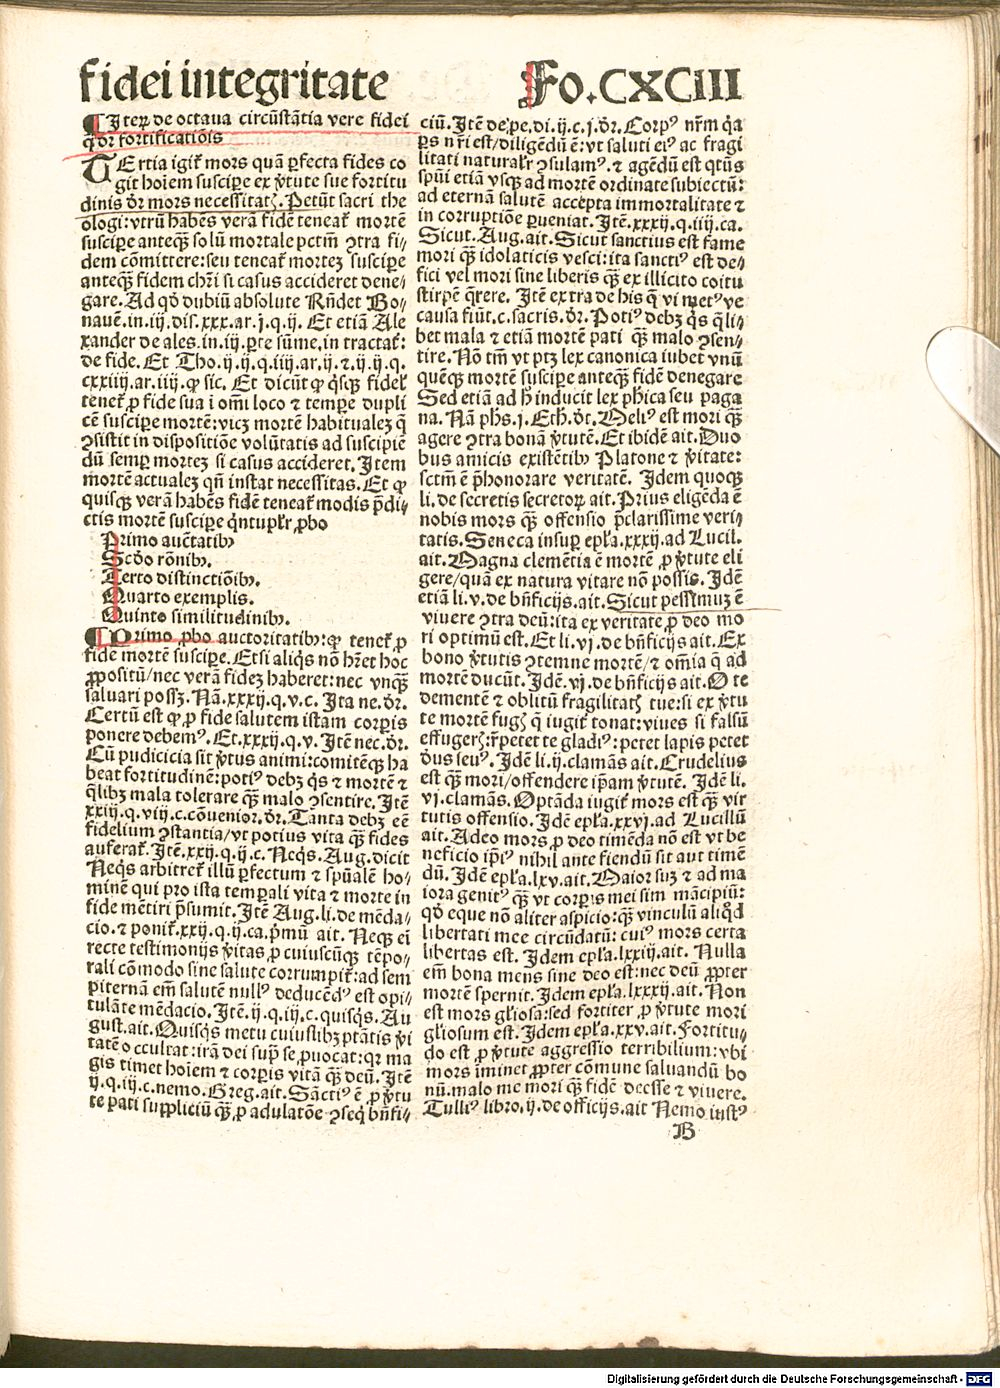 fidei integritate
Fo.CXCIII
¶ Iteꝝ de octaua circūstātia vere fidei
q̄ dr̄ fortificatiōis
TErtia igit᷑ mors quā ꝑfecta fides co
git hoīem suscipere ex v̓tute sue fortitu
dinis dr̄ mors necessitatꝭ. Petūt sacri the
ologi: vtrū habēs verā fidē teneat᷑ mortē
suscipe anteq̄ꝫ solū mortale pctm̄ ꝯtra fi⸗
dem cōmittere: seu teneat᷑ mortez suscipe
anteq̄ꝫ fidem chr̄i si casus accideret dene⸗
gare. Ad qd̓ dubiū absolute Rn̄det Bo⸗
nauē. in .iij. dis. xxx. ar. j. q. ij. Et etiā Ale
xander de ales. in .iij. ꝑte sūme. in tractat᷑:
de fide. Et Tho. ij. ij. q. iiij. ar. ij. ⁊. ij. ij. q.
cxxiiij. ar. iiij. ꝙ sic. Et dicūt ꝙ q̓sqꝫ fidel᷑
tenet᷑ ꝓ fide sua ī om̄i loco ⁊ tempe dupli
cē suscipe mortē: vicꝫ mortē habitualez q̄
ꝯsistit in dispositiōe volūtatis ad suscipiē
dū semꝑ mortez si casus accideret. Item
mortē actualez qn̄ instat necessitas. Et ꝙ
quisqꝫ verā habēs fidē teneat᷑ modis p̄di⸗
ctis mortē suscipe q̓ntuplr̄ ꝓbo
Primo auc̄tatibꝰ
Scd̓o rōnibꝰ.
Tertō distinctiōibꝰ.
Quarto exemplis.
Quinto similitudinibꝰ.
¶ Primo ꝓbo auctoritatibꝰ: ꝙ tenet᷑ ꝓ
fide mortē suscipe. Etsi aliq̓s nō hr̄et hoc
ꝓpositū/ nec verā fidez haberet: nec vnq̄ꝫ
saluari possꝫ. Nā. xxxij. q. v. c. Ita ne. dr̄.
Certū est ꝙ ꝓ fide salutem istam corꝑis
ponere debemꝰ. Et. xxxij. q. v. Itē nec. dr̄.
Cū pudicicia sit v̓tus animi: comitēqꝫ ha
beat fortitudinē: potiꝰ debꝫ q̓s ⁊ mortē ⁊
q̄libꝫ mala tolerare q̄ꝫ malo ꝯsentire. Itē
xxiij. q. viij. c. cōuenior. dr̄. Tanta debꝫ eē
fidelium ꝯstantia/ vt potius vita q̄ꝫ fides
auferat᷑. Itē. xxij. q. ij. c. Neq̓s. Aug. dicit
Neq̓s arbitret᷑ illū ꝑfectum ⁊ spūalē ho⸗
minē qui pro ista temꝑali vita ⁊ morte in
fide mētiri p̄sumit. Itē Aug. li. de mēda⸗
cio. ⁊ ponit᷑. xxij. q. ij. ca. p̓mū ait. Neqꝫ ei̅
recte testimonijs v̓itas ꝓ cuiuscūqꝫ tēpo⸗
rali cōmodo sine salute corrumpit᷑: ad sem
piternā em̄ salutē nullꝰ deducēdꝰ est opi⸗
tulāte mēdacio. Itē. ij. q. iij. c. quisq̓s. Au
gust. ait. Quisq̓s metu cuiuslibꝫ ptātis v̓i
tatē occultat: irā dei suꝑ se ꝓuocat: qꝛ ma
gis timet hoīem ⁊ corꝑis vitā q̄ꝫ deū. Itē
ij. q. iij. c. nemo. Greg. ait. Sāctiꝰ ē ꝓ v̓tu
te pati suppliciū q̄ꝫ ꝓ adulatōe ꝯseq̓ bn̄fi⸗
ciū. Itē de pe. di. ij. c. j. dr̄. Corpꝰ nr̄m q̓a
ꝑs nr̄i est/ diligēdū ē: vt saluti eiꝰ ac fragi
litati naturalr̄ ꝯsulamꝰ. ⁊ agēdū est q̓tūs
spūi etiā vsqꝫ ad mortē ordinate subiectū:
ad eternā salutē accepta immortalitate ⁊
in corruptiōe ꝑueniat. Itē. xxxij. q. iiij. ca.
Sicut. Aug. ait. Sicut sanctius est fame
mori q̄ꝫ idolaticis vesci: ita sanctiꝰ est de⸗
fici vel mori sine liberis q̄ꝫ ex illicito coitu
stirpē q̄rere. Itē extra de his q̄ vi metꝰ ve
causa fiūt. c. sacris. dr̄. Potiꝰ debꝫ q̓s q̄li⸗
bet mala ⁊ etiā mortē pati q̄ꝫ malo ꝯsen⸗
tire. Nō tm̄ vt ptꝫ lex canonica iubet vnū
quēqꝫ mortē suscipe anteq̄ꝫ fidē denegare
Sed etiā ad h̓ inducit lex ph̄ica seu paga
na. Nā ph̄s. j. Eth. dt̄. Meliꝰ est mori q̄ꝫ
agere ꝯtra bonā v̓tutē. Et ibidē ait. Duo
bus amicis existētibꝰ Platone ⁊ v̓itate:
sctm̄ ē p̄honorare veritatē. Idem quoqꝫ
li. de secretis secretoꝝ ait. Prius eligēda ē
nobis mors q̄ꝫ offensio p̄clarissime veri⸗
tatis. Seneca insuꝑ epl̄a. xxxij. ad Lucil.
ait. Magna clementia ē mortē ꝓ v̓tute eli
gere/ quā ex natura vitare nō possis. Idē
etiā li. v. de bn̄ficijs. ait. Sicut pessimuꝫ ē
viuere ꝯtra deū: ita ex veritate ꝓ deo mo
ri optimū est. Et li. vj. de bn̄ficijs ait. Ex
bono v̓tutis ꝯtemne mortē/ ⁊ om̄ia q̄ ad
mortē ducūt. Idē. vj. de bn̄ficijs ait. O te
dementē ⁊ oblitū fragilitatꝭ tue: si ex v̓tu
te mortē fugꝭ q̄ iugit᷑ tonat: viues si falsū
effugerꝭ: r̄petet te gladiꝰ: petet lapis petet
dūs seuꝰ. Idē li. ij. clamās ait. Crudelius
est q̄ꝫ mori/ offendere ip̄am v̓tutē. Idē li.
vj. clamās. Optāda iugit᷑ mors est q̄ꝫ vir
tutis offensio. Idē epl̄a. xxvj. ad Lucillū
ait. Adeo mors ꝓ deo timēda nō est vt be
neficio ip̄iꝰ nihil ante fiendū sit aut timē
dū. Idē epl̄a. lxv. ait. Maior suꝫ ⁊ ad ma
iora genitꝰ q̄ꝫ vt corꝑis mei sim mācipiū:
qd̓ eque nō aliter aspicio: q̄ꝫ vinculū aliq̓d
libertati mee circūdatū: cuiꝰ mors certa
libertas est. Idem epl̄a. lxxiij. ait. Nulla
em̄ bona mens sine deo est: nec deū ꝓpter
mortē spernit. Idem epl̄a. lxxxij. ait. Non
est mors gl̄iosa: sed fortiter ꝓ v̓tute mori
gl̄iosum est. Idem epl̄a. xxv. ait. Fortitu⸗
do est ꝓ v̓tute aggressio terribilium: vbi
mors iminet ꝓpter cōmune saluandū bo
nū. malo me mori q̄ꝫ fidē deesse ⁊ viuere.
Tulliꝰ libro. ij. de officijs. ait Nemo iustꝰ
B
Digitalisierung gefördert durch die Deutsche Forschungsgemeinschaft - DFG